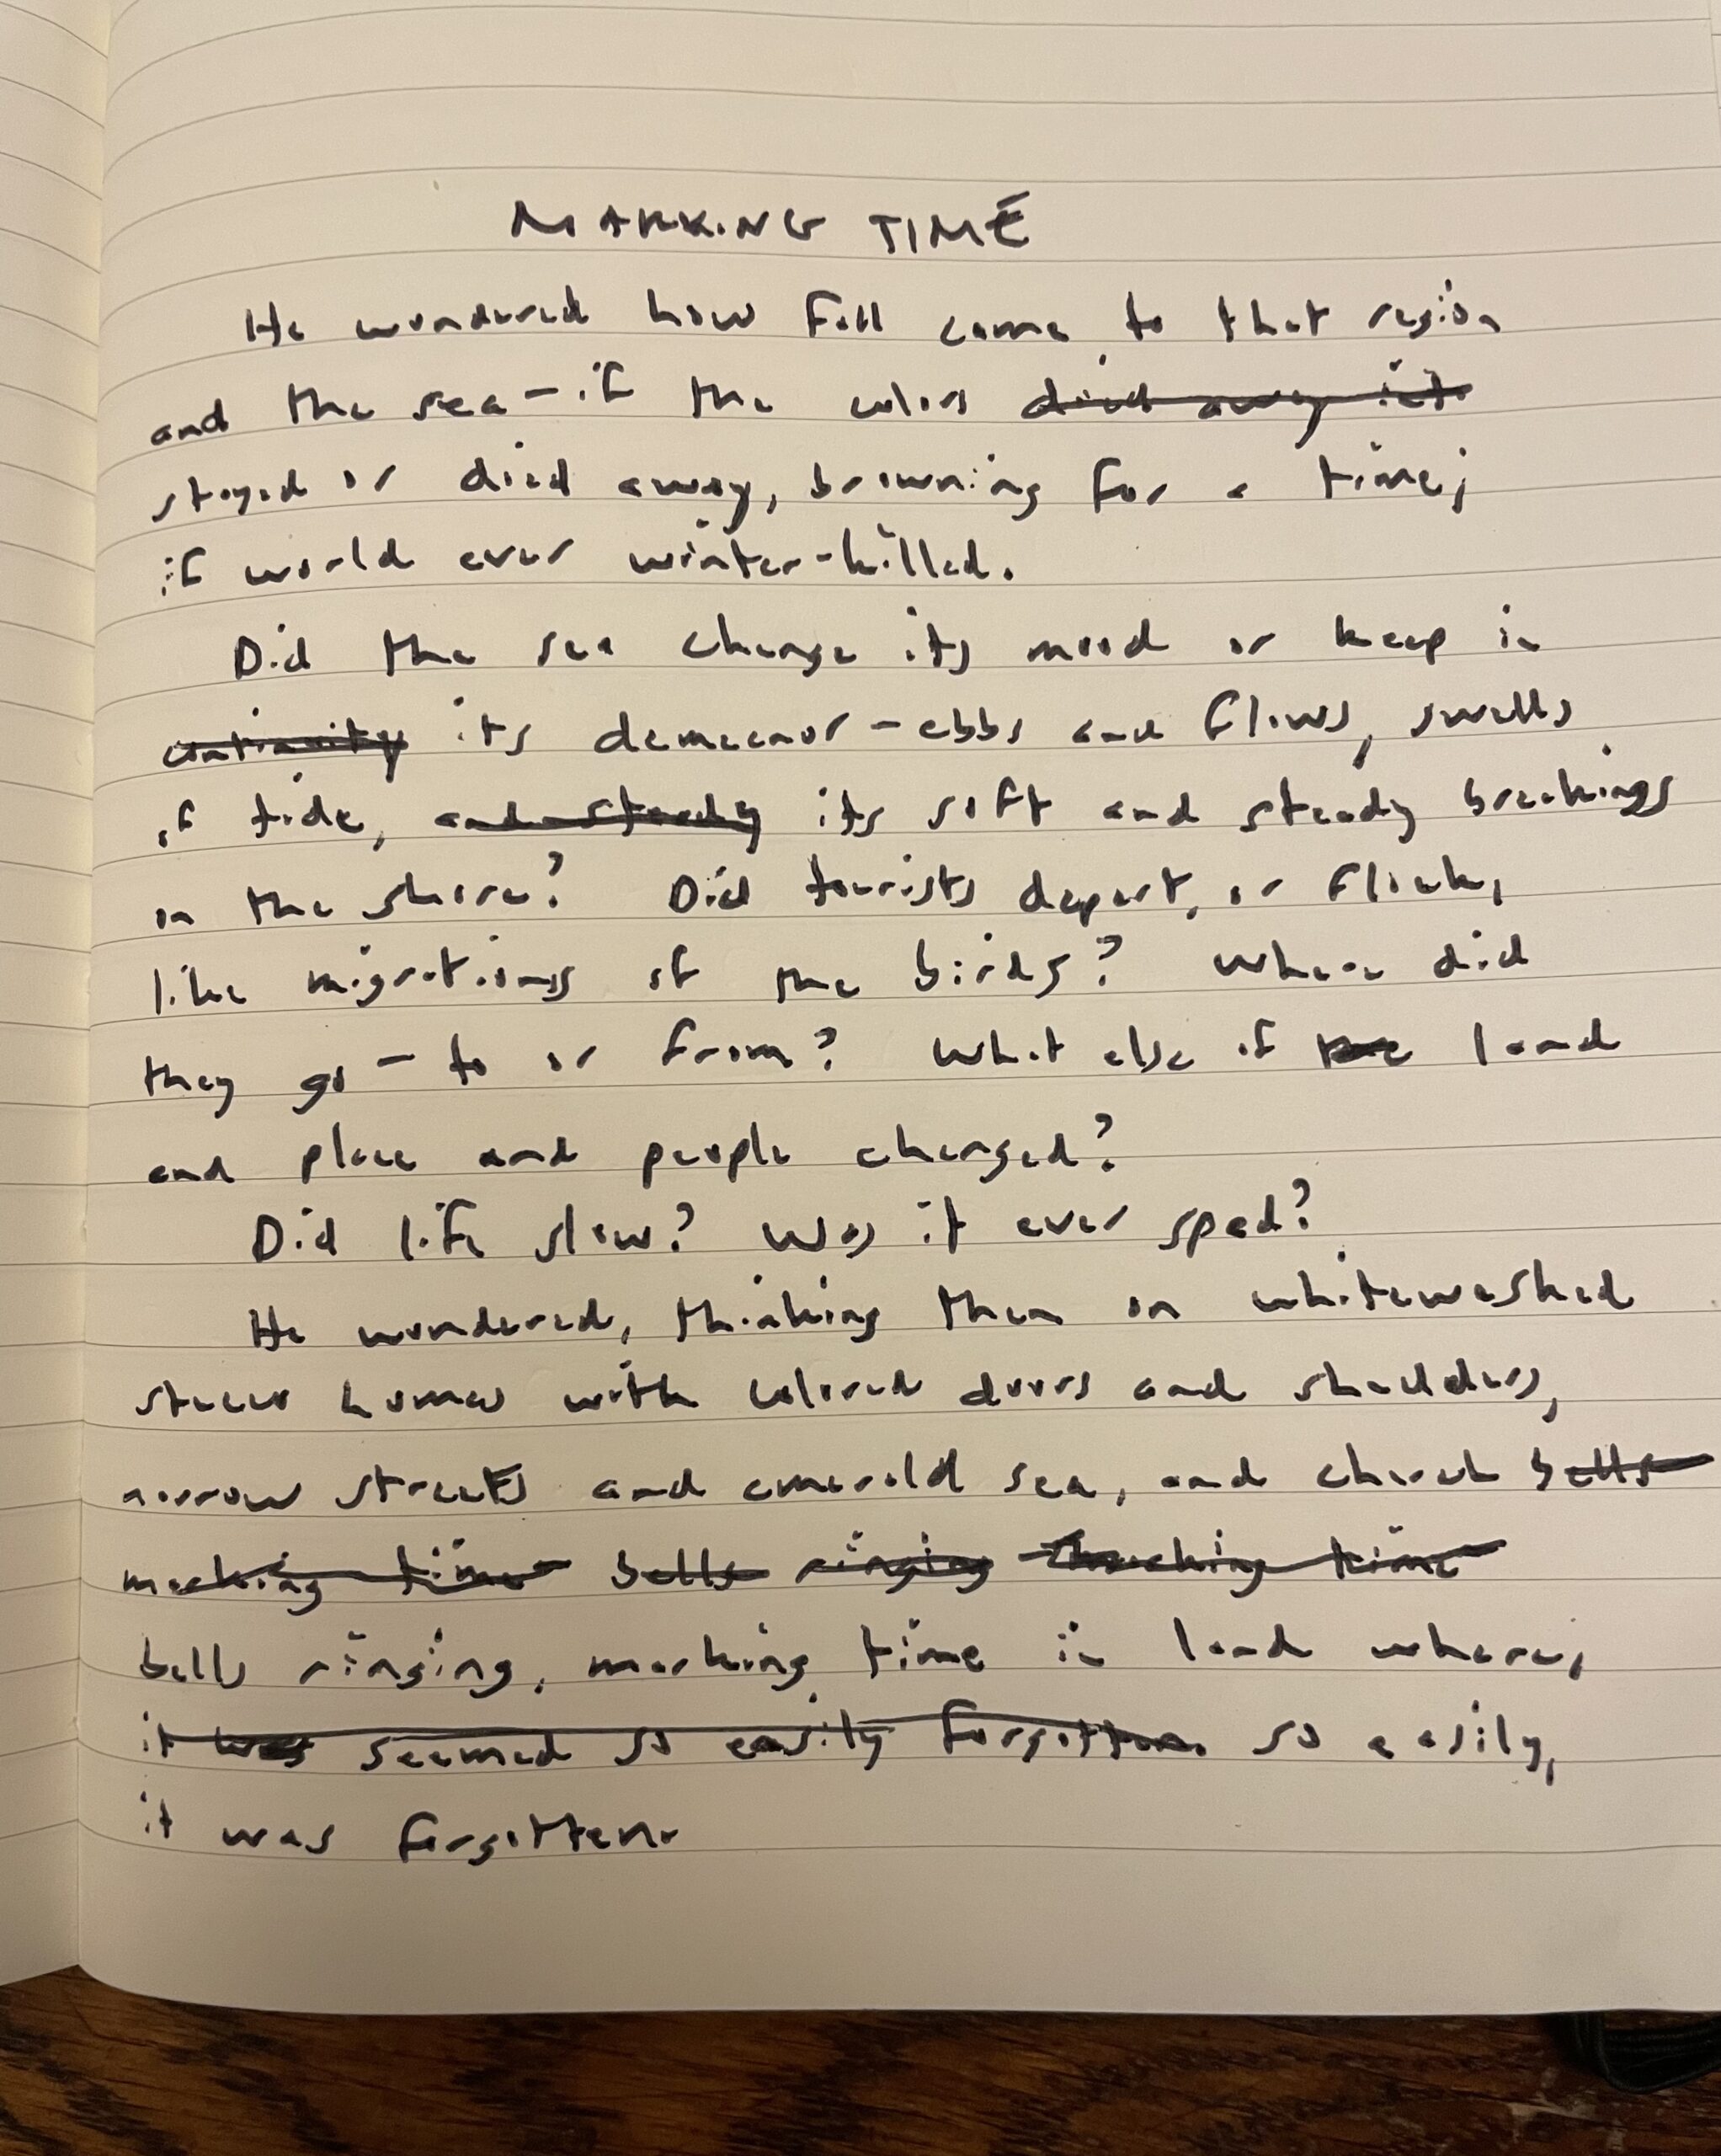 MARKING TIME
He wondered how fall came to that region
and the sea – if the colors died away it
stayed or died away, browning for a time;
if world ever winter-killed.
Did the sea change its mood or keep in
continuity its demeanor – ebbs and flows, swells
of tide, and steady its soft and steady breakings
on the shore? Did tourists depart, or flock,
like migrations of the birds? Where did
they go – to or from? What else of the land
and place and people changed?
Did life slow? Was it ever sped?
He wondered, thinking then on whitewashed
stucco homes with colored doors and shudders,
narrow streets and emerald sea, and church bells
marking time bells ringing marking time
bells ringing, marking time in land where,
it was seemed so easily forgotten so easily,
it was forgotten.